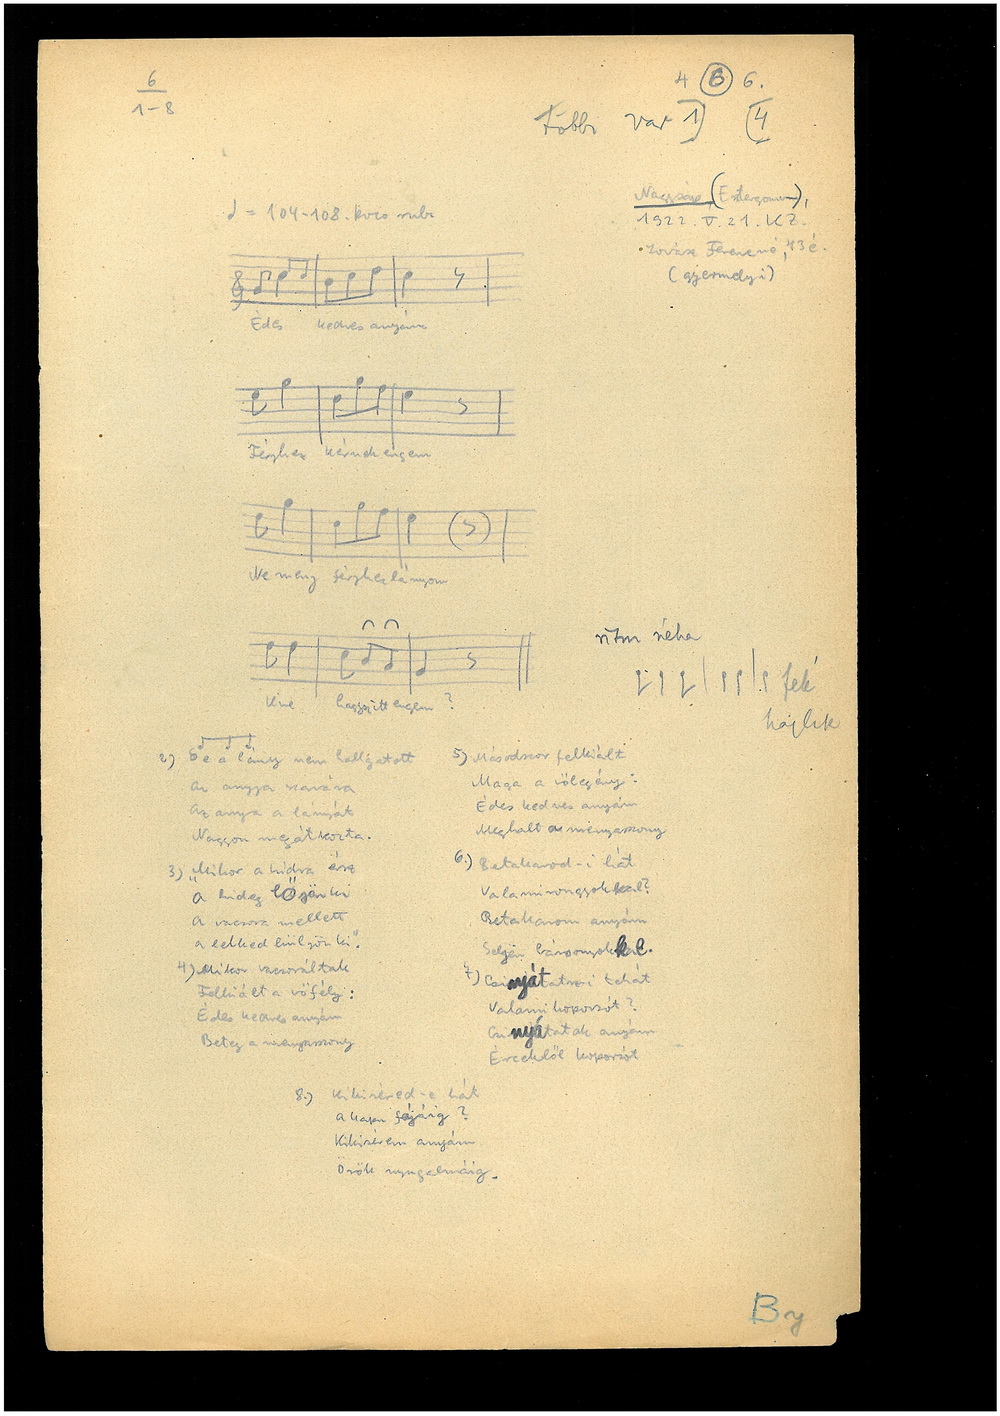 6
1-8
4 6 6.
Többi var 1) (4
Nagysáp (Esztergom),
1922. V. 21. KZ.
Ferencné, 43 é.
(gyermelyi)
♩ = 104-108. poco rub.
Édes kedves anyám
Férjhez kérnek engem
Ne menj férjhez lányom
Kire hagysz itt engem?
ritm néha
felé
hajlik
2) De a lány nem hallgatott
Az anyja szavára
Az anyja a lányát
Nagyon megátkozta.
3) „Mikor a hidra érsz
A hideg lőjön ki
A vacsora mellett
a lelked küljön ki".
4) Mikor vacsoráltak
Felkiált a vőfély:
Édes kedves anyám
Beteg a menyasszony
5) Másodszor felkiált
Maga a vőlegény:
Édes kedves anyám
Meghalt a menyasszony
6.) Betakarod-i hát
Valami rongyokkal?
Betakarom anyám
Selyem bársonyokkal.
7) Csinyáttatsz-i tehát
Valami koporsót?
Csinyátatok anyám
Ércekből koporsót
8.) Kikiséred-e hát
A kapu fájáig?
Kikisérem anyám
Örök nyugalmáig.
By